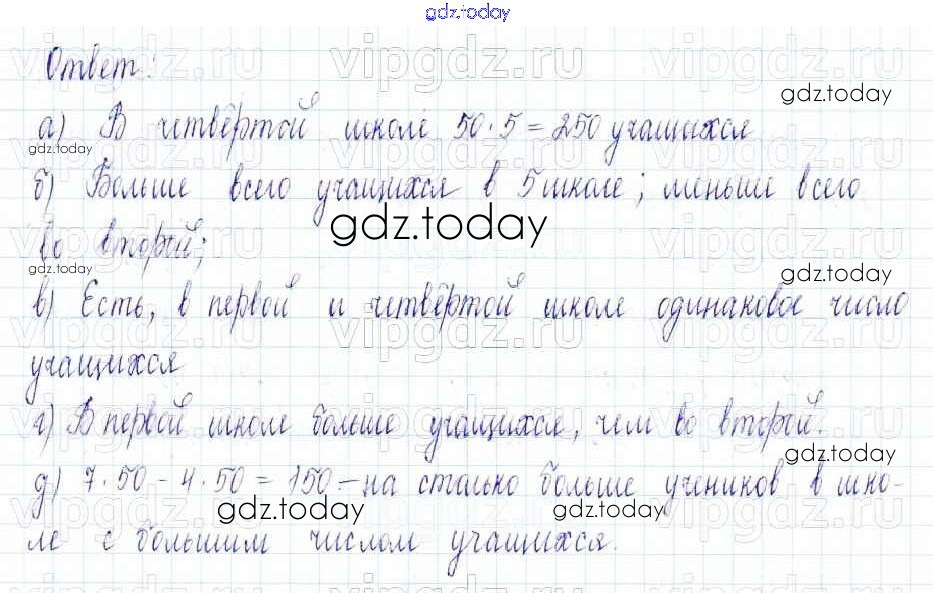 gdz.today
Ответ:
gdz.today
а) В четвёртой школе 50·5=250 учащихся
gdz.today
б) Больше всего учащихся в 5 школе; меньше всего
gdz.today
во второй;
gdz.today
gdz.today
в) Есть, в первой и четвёртой школе одинаковое число
учащихся
г) В первой школе больше учащихся, чем во второй.
gdz.today
д) 7·50 - 4·50 = 150 - на столько больше учеников в шко-
gdz.today
gdz.today
ле с большим числом учащихся.
vipgdz.ru